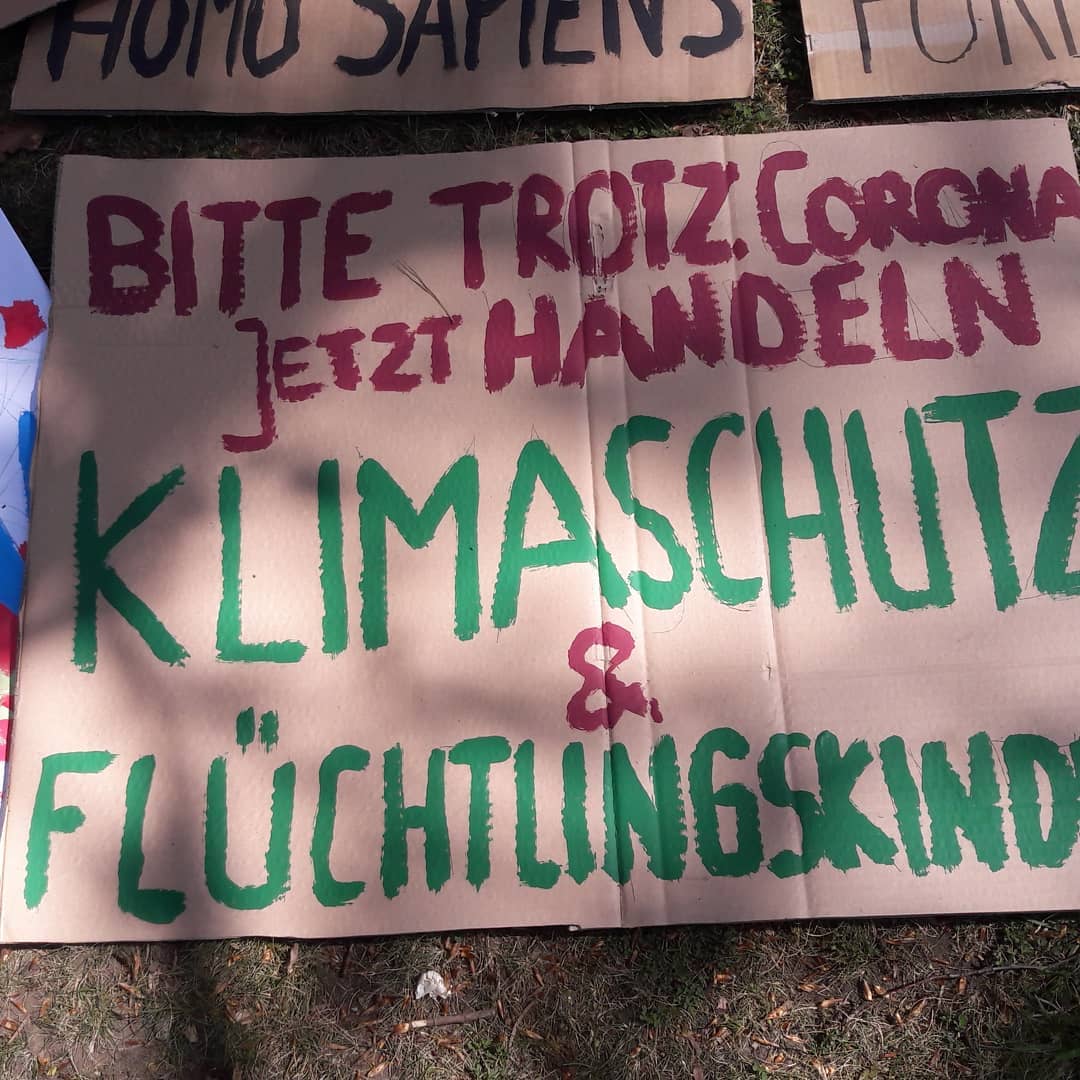 HOMO SAPIENS
BITTE TROTZ. CORONA
JETZT HANDELN
KLIMASCHUTZ
&.
FLÜCHTLINGSKIND